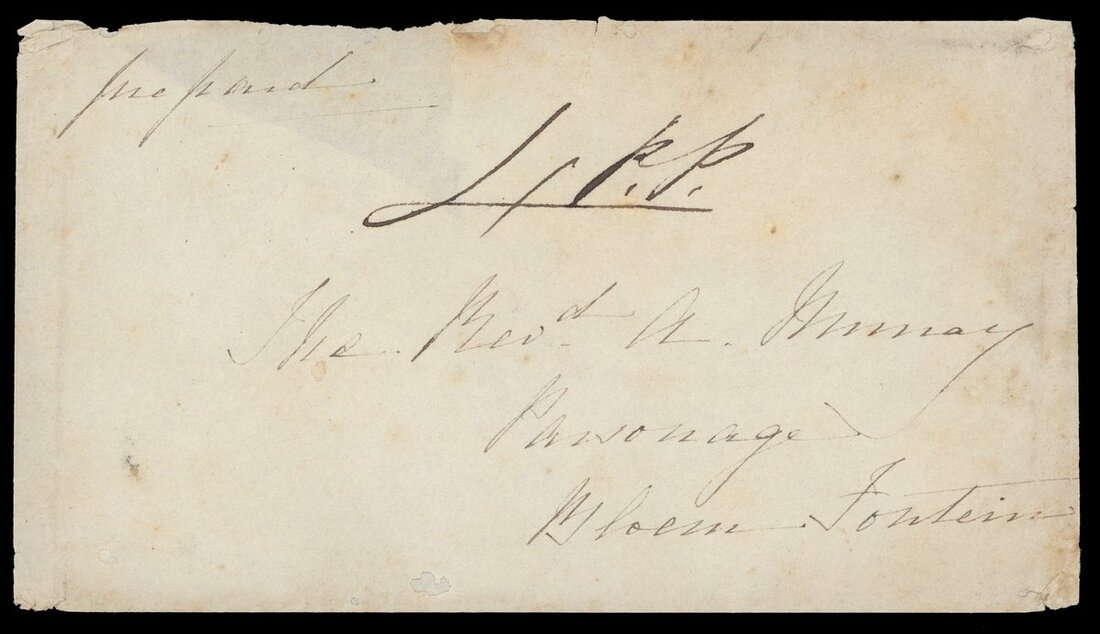 prepaid
4 p.p.
The Revd. A. Murray
Parsonage
Bloem Fontein